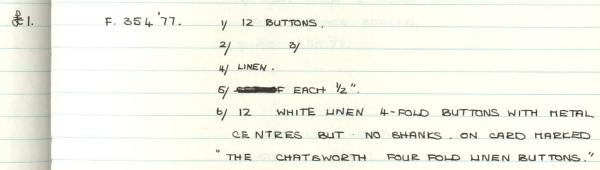 £1. F. 354 '77. 1/ 12 BUTTONS.
2/ 3/
4/ LINEN.
5/ OF EACH 1/2".
6/ 12 WHITE LINEN 4-FOLD BUTTONS WITH METAL
CENTRES BUT NO SHANKS. ON CARD MARKED
"THE CHATSWORTH FOUR FOLD LINEN BUTTONS."